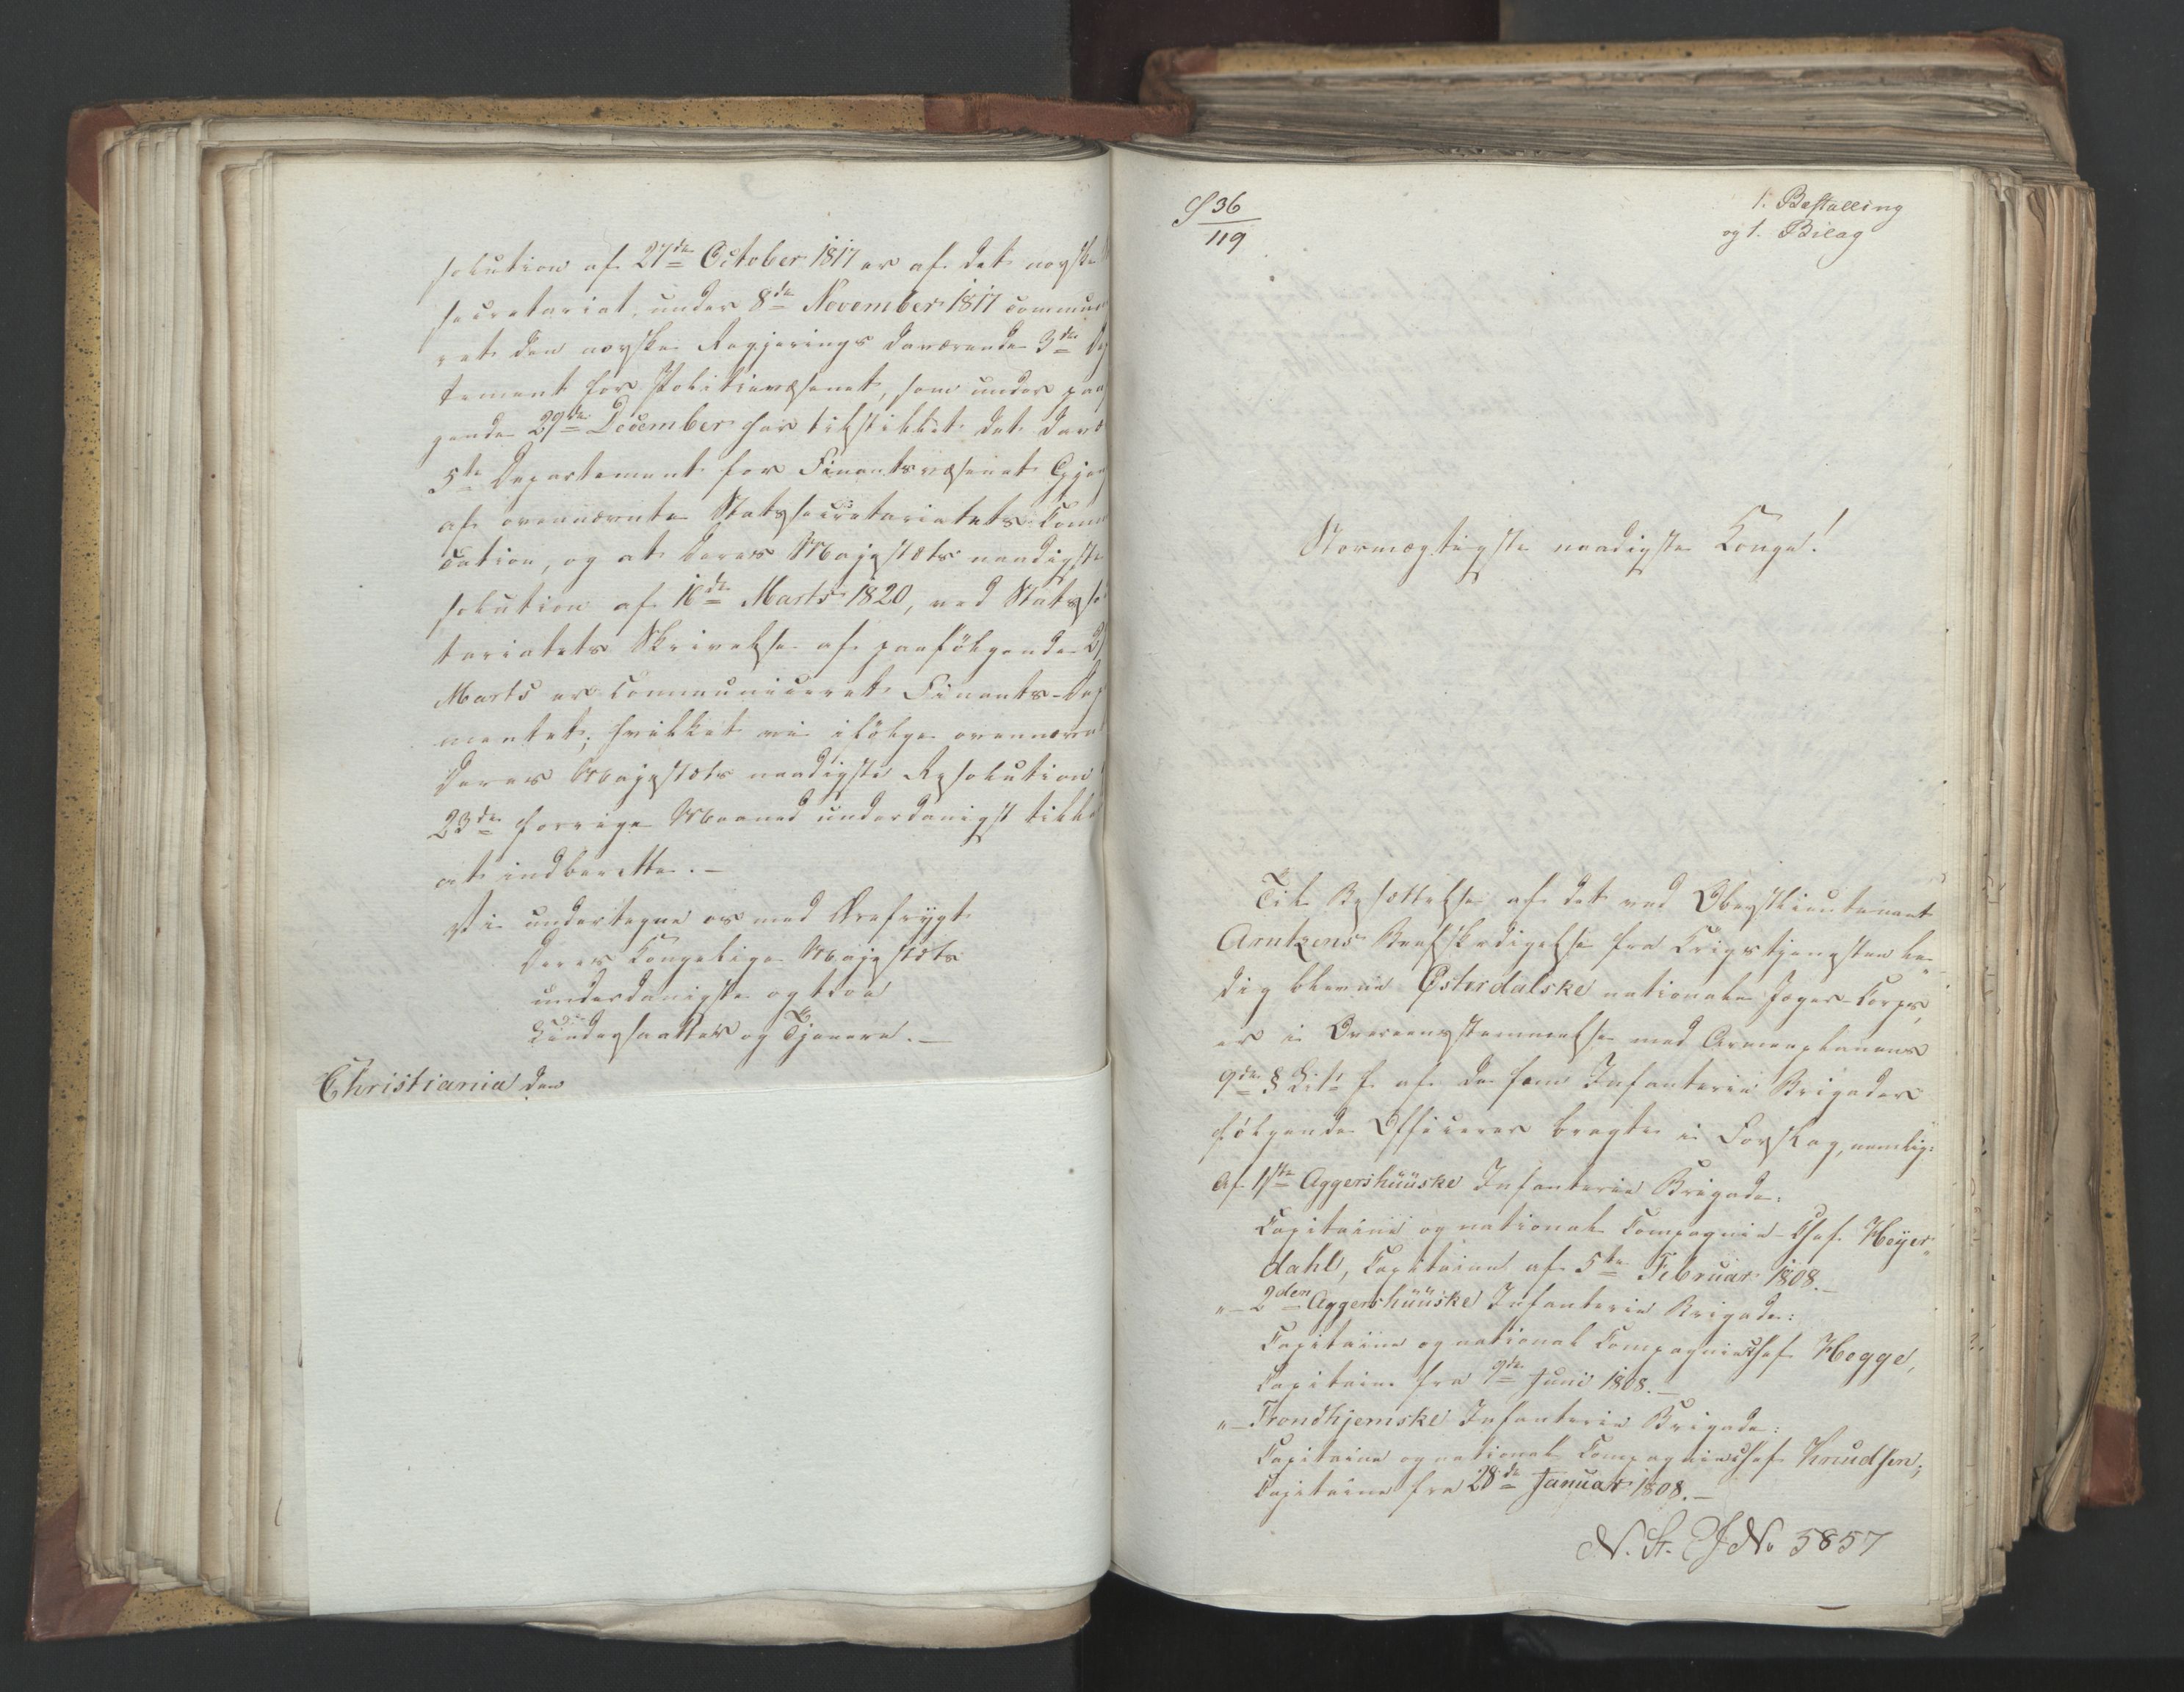 solution af 27de October 1817 er af det norske
secretariat, under 8de November 1817 commu
ret den norske Regjerings daværende 3de De
tement for Politievæsenet, som under paa
gende 29de December har tilstillet det davæ
5te Departement for Finantsvæsenet Gjen
af ovennævnte Statssecretariatets Com
cation, og at Deres Majestæts naadigste
solution af 16de Marts 1820, ved Statsse
tariatets Skrivelse af paafølgende
Marts er communiceret Finants-De
mentet; hvilket vi ifølge ovennævn
Deres Majestæts naadigste Resolution
23de forrige Maaned underdanigst
at indberette.-
Vi undertegne os med Ærefrygt
Deres Kongelige Majestæts
underdanigste og troe
Undersaatter og Tjenere.-
Christiania den
S 36
119
1. Bestalling
og 1. Bilag
Stormægtigste naadigste Konge!
Til Besættelse af det ved Oberstlieutenant
Arntzens Beafskedigelse fra Krigstjenesten le„
dig blevne Østerdalske nationale Jæger-Corps,
er i Overeensstemmelse med Armeeplanens
9de § Lit. f. af de fem Infanterie Brigader
følgende Officerer bragte i Forslag, nemlig:
Af 1ste Aggershuuske Infanterie Brigade:
Capitaine og national Compagnie-Chef Heyer„
dahl, Capitaine af 5te Februar 1808.-
„- 2den Aggershuuske Infanterie Brigade:
Capitaine og national Compagniechef Hegge,
Capitaine fra 9de Juni 1808.-
„- Trondhjemske Infanterie Brigade:
Capitaine og national Compagniechef Knudsen,
Capitaine fra 28de Januar 1808.-
N. St. J No 5857